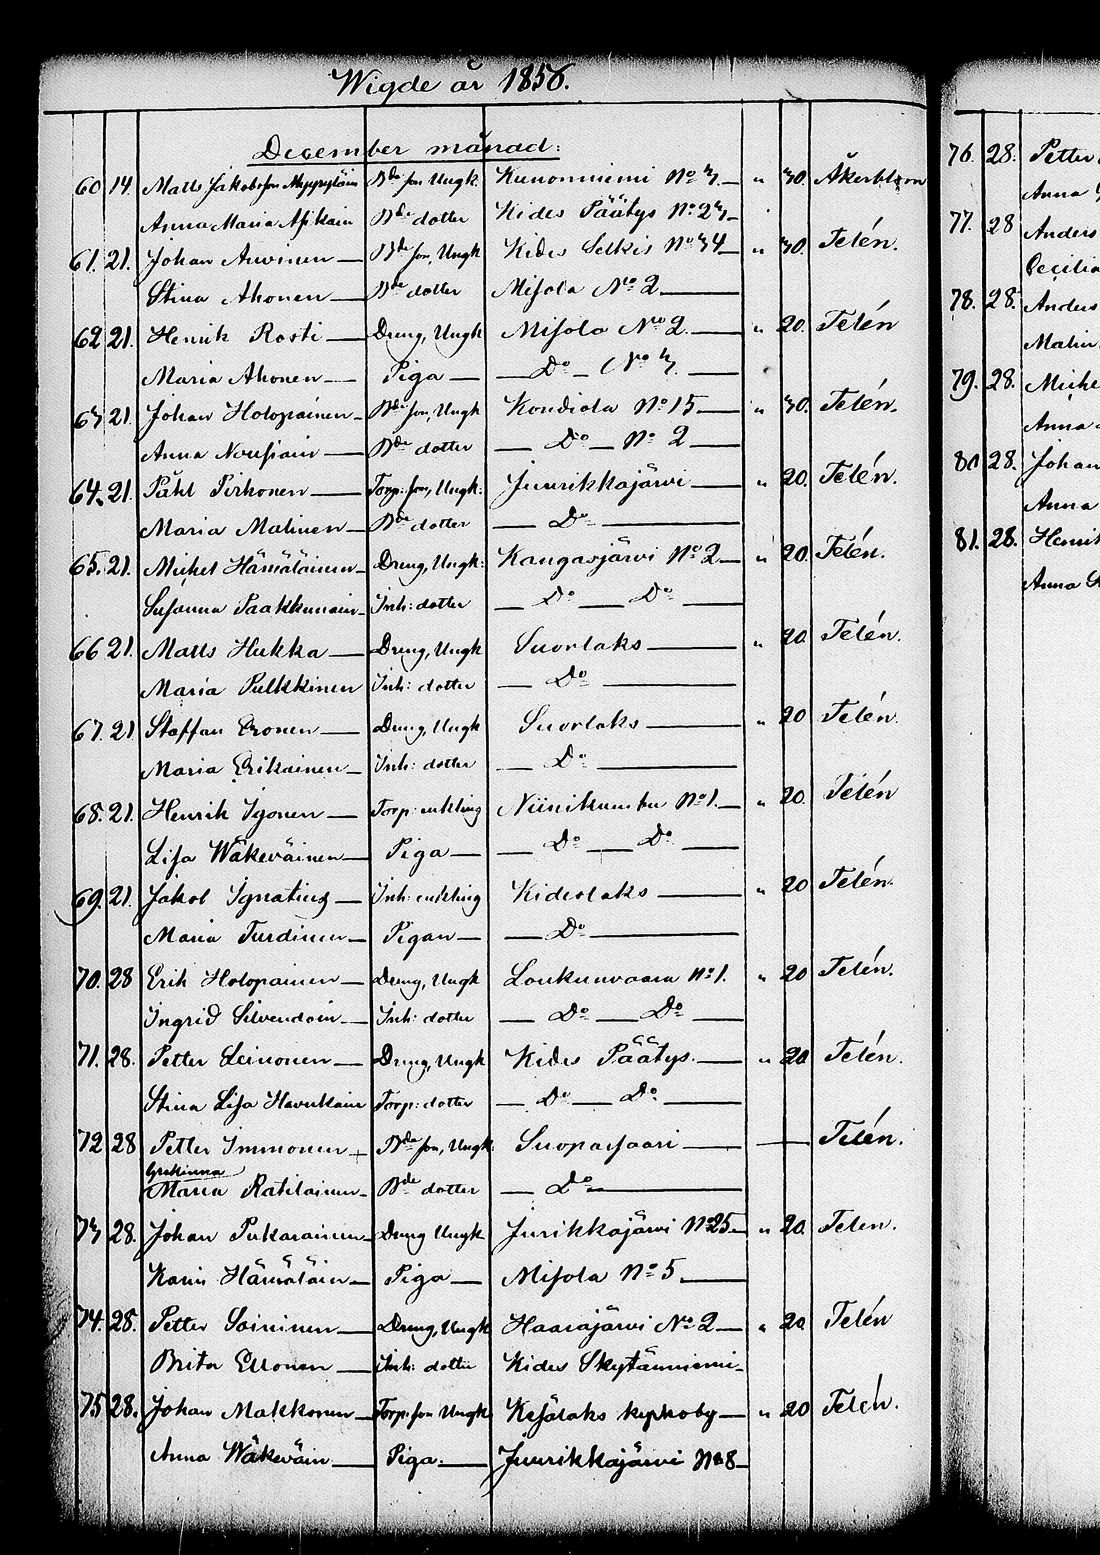 Wigde år 1856.
December månad:
60 14. Matts Jakobsson Myyryläin Bde son Ungk. Kunonniemi No 3. " 30. Åkerblom
Anna Maria Asikain Bde dotter Kides Päätys No 23
61. 21. Johan Auvinen Bde son, Ungk Kides Selkis No 34 " 30. Telén.
Stina Ahonen Bde dotter Misola No 2
62 21. Henrik Rosti Dreng, Ungk Misola No 2. " 20. Telén
Maria Ahonen Piga Do No 3.
63 21. Johan Holopainen Bde son, Ungk Kondiola No 15 " 30. Telén.
Anna Nousiain Bde dotter Do No 2
64. 21. Påhl Pirhonen Torp: son, Ungk: Juurikkajärvi " 20. Telén.
Maria Malinen Bde dotter Do
65. 21. Michel Hämäläinen Dreng, Ungk: Kangasjärvi No 2 " 20. Telén.
Susanna Paakkunain Inh: dotter Do Do
66 21. Matts Hukka Dreng, Ungk Suorlaks " 20. Telén.
Maria Pulkkinen Inh: dotter Do
67. 21 Staffan Eronen Dreng, Ungk Suorlaks " 20 Telén.
Maria Erikainen Inh: dotter Do
68. 21. Henrik Igonen Torp: enkling Niinikumbu No 1. " 20. Telén
Lisa Wäkeväinen Piga Do Do
69. 21. Jakob Ignatius Inh: enkling Kideslaks " 20 Telén.
Maria Turdinen Pigan Do
70. 28 Erik Holopainen Dreng, Ungk Loukunvaara No 1. " 20 Telén.
Ingrid Silvendoin Inh: dotter Do Do
71. 28. Petter Leinonen Dreng, Ungk Kides Päätys. " 20 Telén.
Stina Lisa Havukain Torp: dotter Do Do
72 28 Petter Immonen Bde son, Ungk: Suopassaari Telén.
Grekinna
Maria Ratilainen Bde dotter Do
73 28. Johan Pukarainen Dreng Ungk Jurikkajärvi No 25 " 20. Telen.
Karin Hämäläin Piga Misola No 5
74. 28. Petter Soininen Dreng, Ungk Haarajärvi No 2 " 20 Telén
Brita Ellonen Inh: dotter Kides Skytänniemi
75 28. Johan Makkonen Torp: son Ungk Kesälaks kyrkoby " 20 Telén.
Anna Wäkeväin Piga. Juurikkajärvi No 8
76. 28. Petter
Anna
77. 28 Anders
Cecilia
78. 28. Anders
Malin
79. 28. Michel
Anna
80 28. Johan
Anna
81. 28. Henrik
Anna